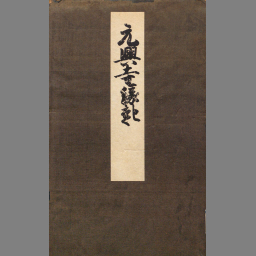 元興寺縁起